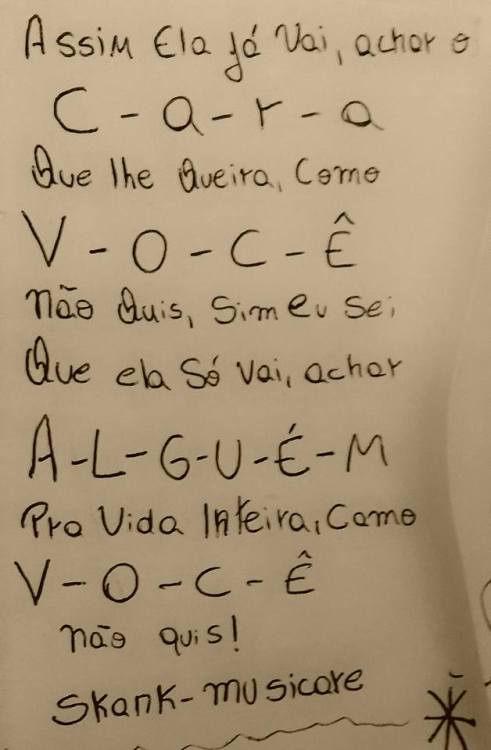 Assim Ela já Vai, achar o
C - a - r - a
Que lhe Queira, Como
V - O - C - Ê
não Quis, Sim eu sei
Que ela Só vai, achar
A-L-G-U-É-M
Pra Vida Inteira, Como
V - O - C - Ê
não quis!
Skank-musicare